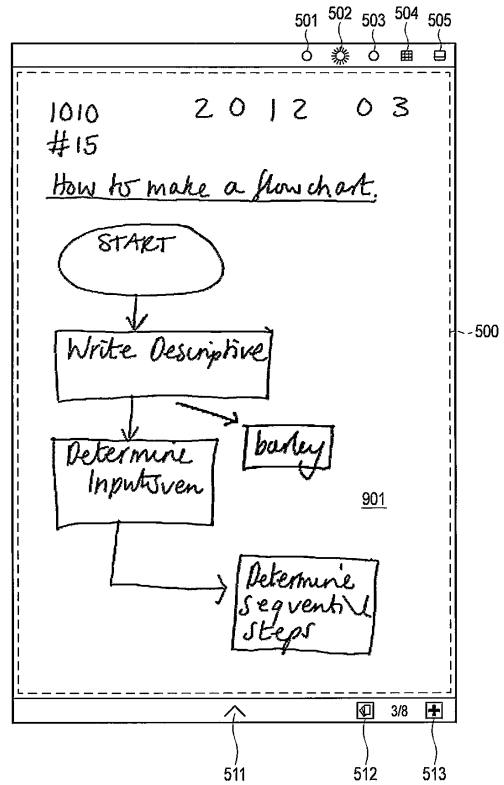 501 502 503 504 505
1010 2 0 1 2 0 3
#15
How to make a flowchart.
START
500
Write Descriptive
barley
Determine
InputsJven
901
Determine
seqventive
steps
3/8
511 512 513